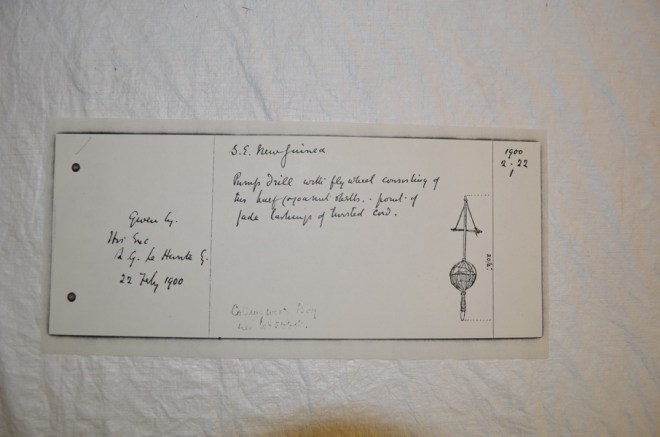 Given by.
His Exc
R. G. Le Hunte Esq.
22 Feby 1900
S.E. New Guinea
Pump drill with flywheel consisting of
two half cocoanut shells. - point of
jade lashings of twisted cord.
Collingwood Bay
1900
2 . 22
1
20½"